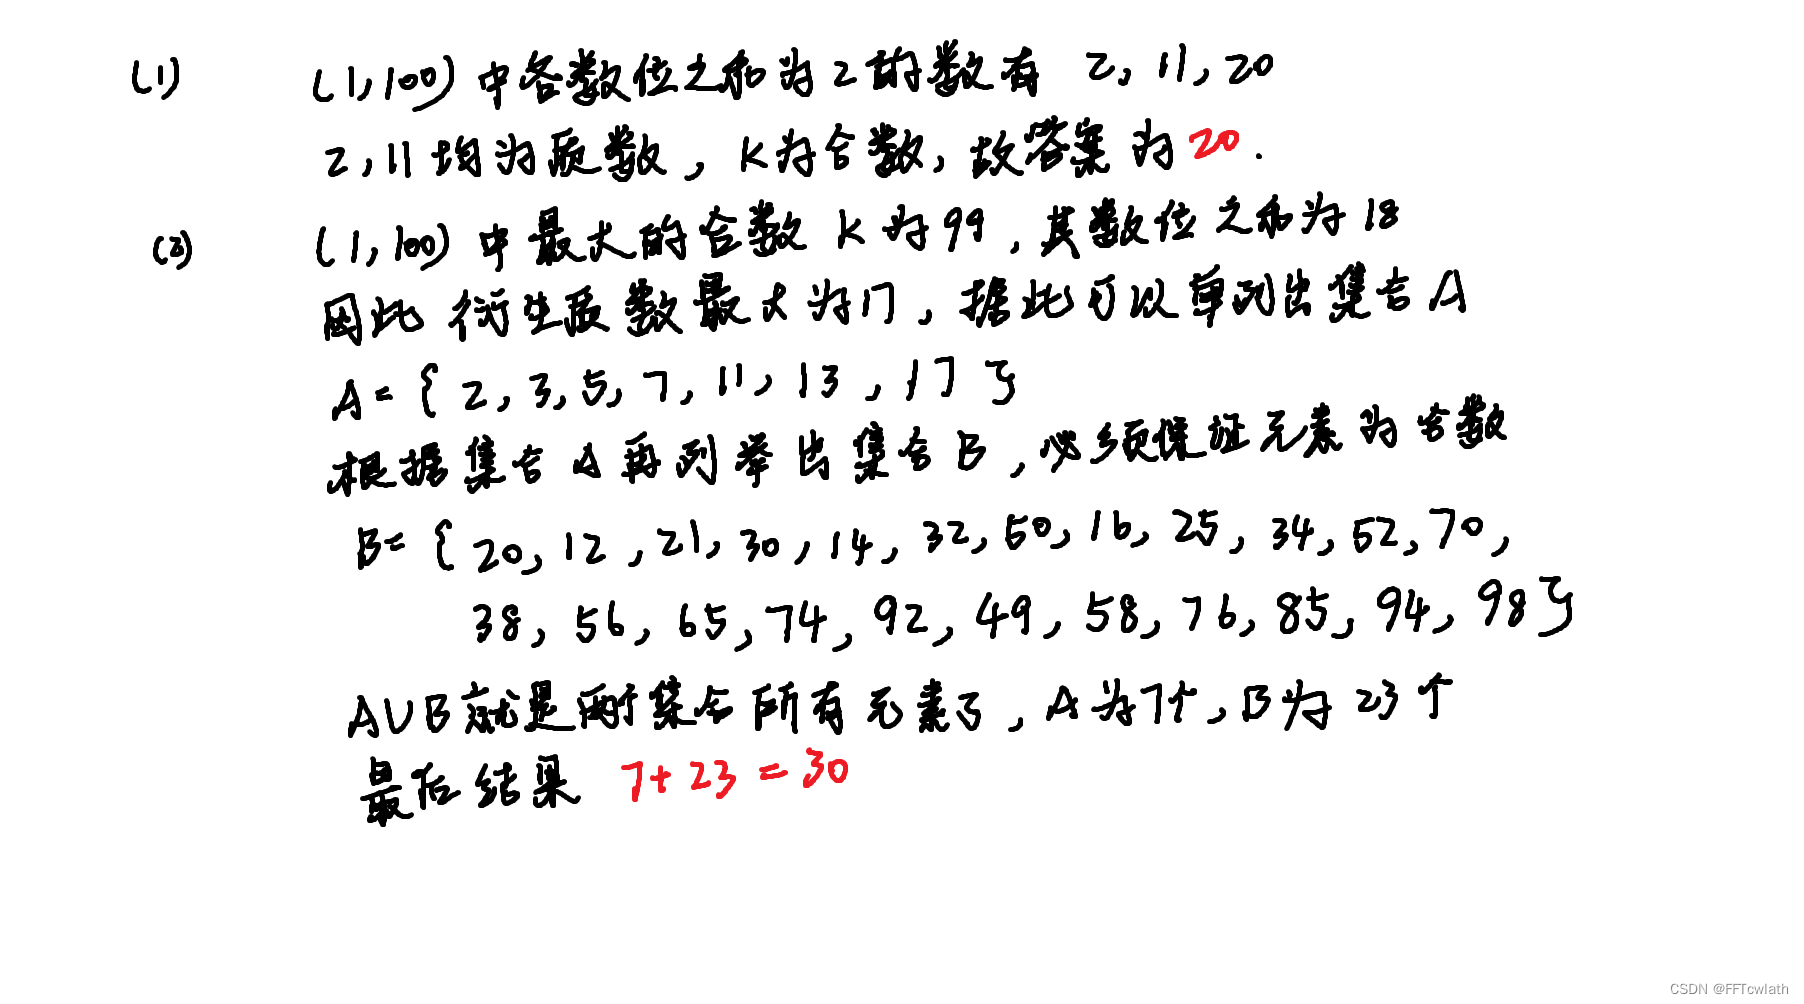 (1) (1,100) 中各数位之和为2的数有 2, 11, 20
2, 11 均为质数, K为合数, 故答案为20.
(2) (1,100) 中最大的合数 K 为 99, 其数位之和为 18
因此 衍生质数最大为17, 据此可以单列出集合A
A = { 2, 3, 5, 7, 11, 13, 17 }
根据集合A再列举出集合B, 必须保证元素为合数
B = { 20, 12, 21, 30, 14, 32, 50, 16, 25, 34, 52, 70,
38, 56, 65, 74, 92, 49, 58, 76, 85, 94, 98 }
A∪B就是两个集合所有元素了, A为7个, B为23个
最后结果 7+23=30
CSDN @FFTcwlath